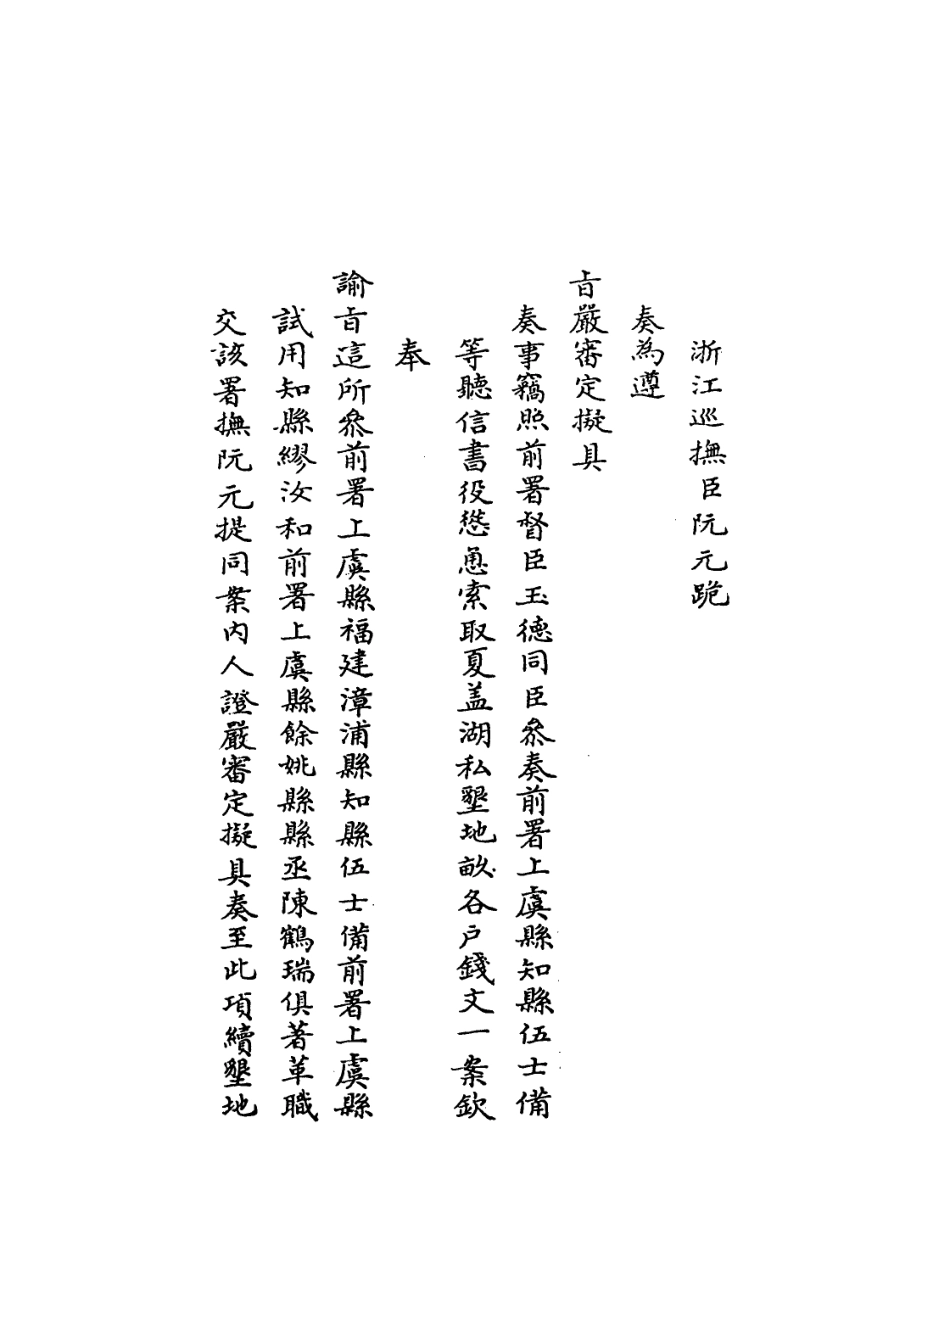 浙江巡撫臣阮元跪
奏為遵
旨嚴審定擬具
奏事竊照前署督臣玉德同臣叅奏前署上虞縣知縣伍士備
等聽信書役慫恿索取夏盖湖私墾地畝各戶錢文一案欽
奉
諭旨這所叅前署上虞縣福建漳浦縣知縣伍士備前署上虞縣
試用知縣繆汝和前署上虞縣餘姚縣縣丞陳鶴瑞俱著革職
交該署撫阮元提同案內人證嚴審定擬具奏至此項續墾地